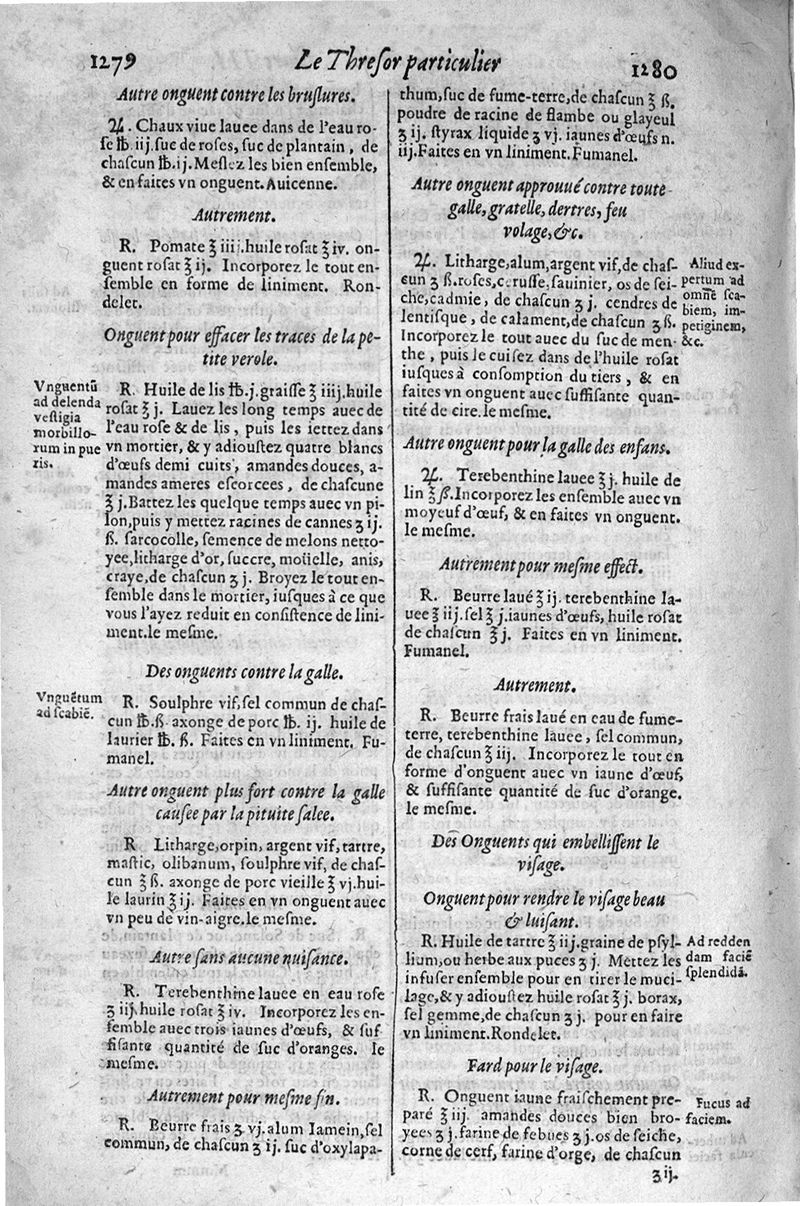 1279
Le Threſor particulier
1280
Autre onguent contre les bruſlures.
♃. Chaux viue lauee dans de l'eau ro-
ſe ℔. iij. ſuc de roſes, ſuc de plantain, de
chaſcun ℔. ij. Meſlez les bien enſemble,
& en faites vn onguent. Auicenne.
Autrement.
R. Pomate ℥ iiij. huile roſat ℥ iv. on-
guent roſat ℥ ij. Incorporez le tout en-
ſemble en forme de liniment. Ron-
delet.
Onguent pour effacer les traces de la pe-
tite verole.
Vnguentũ
ad delenda
veſtigia
morbillo-
rum in pue
ris.
R. Huile de lis ℔. j. graiſſe ℥ iiij. huile
roſat ℥ j. Lauez les long temps auec de
l'eau roſe & de lis, puis les iettez dans
vn mortier, & y adiouſtez quatre blancs
d'œufs demi cuits, amandes douces, a-
mandes ameres eſcorcees, de chaſcune
℥ j. Battez les quelque temps auec vn pi-
lon, puis y mettez racines de cannes ʒ ij.
ß. ſarcocolle, ſemence de melons netto-
yee, litharge d'or, ſuccre, moüelle, anis,
craye, de chaſcun ʒ j. Broyez le tout en-
ſemble dans le mortier, iuſques à ce que
vous l'ayez reduit en conſiſtence de lini-
ment. le meſme.
Des onguents contre la galle.
Vnguẽtum
ad ſcabiẽ.
R. Soulphre vif, ſel commun de chaſ-
cun ℔. ß. axonge de porc ℔. ij. huile de
laurier ℔. ß. Faites en vn liniment. Fu-
manel.
Autre onguent plus fort contre la galle
cauſee par la pituite ſalee.
R Litharge, orpin, argent vif, tartre,
maſtic, olibanum, ſoulphre vif, de chaſ-
cun ℥ ß. axonge de porc vieille ℥ vj. hui-
le laurin ℥ ij. Faites en vn onguent auec
vn peu de vin-aigre. le meſme.
Autre ſans aucune nuiſance.
R. Terebenthine lauee en eau roſe
ʒ iij. huile roſat ℥ iv. Incorporez les en-
ſemble auec trois iaunes d'œufs, & ſuf
fiſante quantité de ſuc d'oranges. le
meſme.
Autrement pour meſme fin.
R. Beurre frais ʒ vj. alum Iamein, ſel
commun, de chaſcun ʒ ij. ſuc d'oxylapa-
thum, ſuc de fume-terre, de chaſcun ℥ ß.
poudre de racine de flambe ou glayeul
ʒ ij. ſtyrax liquide ʒ vj. iaunes d'œufs n.
iij. Faites en vn liniment. Fumanel.
Autre onguent approuué contre toute
galle, gratelle, dertres, feu
volage, &c.
♃. Litharge, alum, argent vif, de chaſ-
cun ʒ ß. roſes, ceruſſe, ſauinier, os de ſei-
che, cadmie, de chaſcun ʒ j. cendres de
lentiſque, de calament, de chaſcun ʒ ß.
Incorporez le tout auec du ſuc de men-
the, puis le cuiſez dans de l'huile roſat
iuſques à conſomption du tiers, & en
faites vn onguent auec ſuffiſante quan-
tité de cire. le meſme.
Aliud ex-
pertum ad
omnẽ ſca-
biem, im-
petiginem,
&c.
Autre onguent pour la galle des enfans.
♃. Terebenthine lauee ℥ j. huile de
lin ℥ ß. Incorporez les enſemble auec vn
moyeuf d'œuf, & en faites vn onguent.
le meſme.
Autrement pour meſme effect.
R. Beurre laué ℥ ij. terebenthine la-
uee ℥ iij. ſel ℥ j. iaunes d'œufs, huile roſat
de chaſcun ℥ j. Faites en vn liniment.
Fumanel.
Autrement.
R. Beurre frais laué en eau de fume-
terre, terebenthine lauee, ſel commun,
de chaſcun ℥ iij. Incorporez le tout en
forme d'onguent auec vn iaune d'œuf,
& ſuffiſante quantité de ſuc d'orange.
le meſme.
Des Onguents qui embelliſſent le
viſage.
Onguent pour rendre le viſage beau
& luiſant.
R. Huile de tartre ℥ iij. graine de pſyl-
lium, ou herbe aux puces ʒ j. Mettez les
infuſer enſemble pour en tirer le muci-
lage, & y adiouſtez huile roſat ℥ j. borax,
ſel gemme, de chaſcun ʒ j. pour en faire
vn liniment. Rondelet.
Ad redden
dam faciẽ
ſplendidã.
Fard pour le viſage.
R. Onguent iaune fraiſchement pre-
paré ℥ iij. amandes douces bien bro-
yees ʒ j. farine de febues ʒ j. os de ſeiche,
corne de cerf, farine d'orge, de chaſcun
Fucus ad
faciem.
ʒ ij.